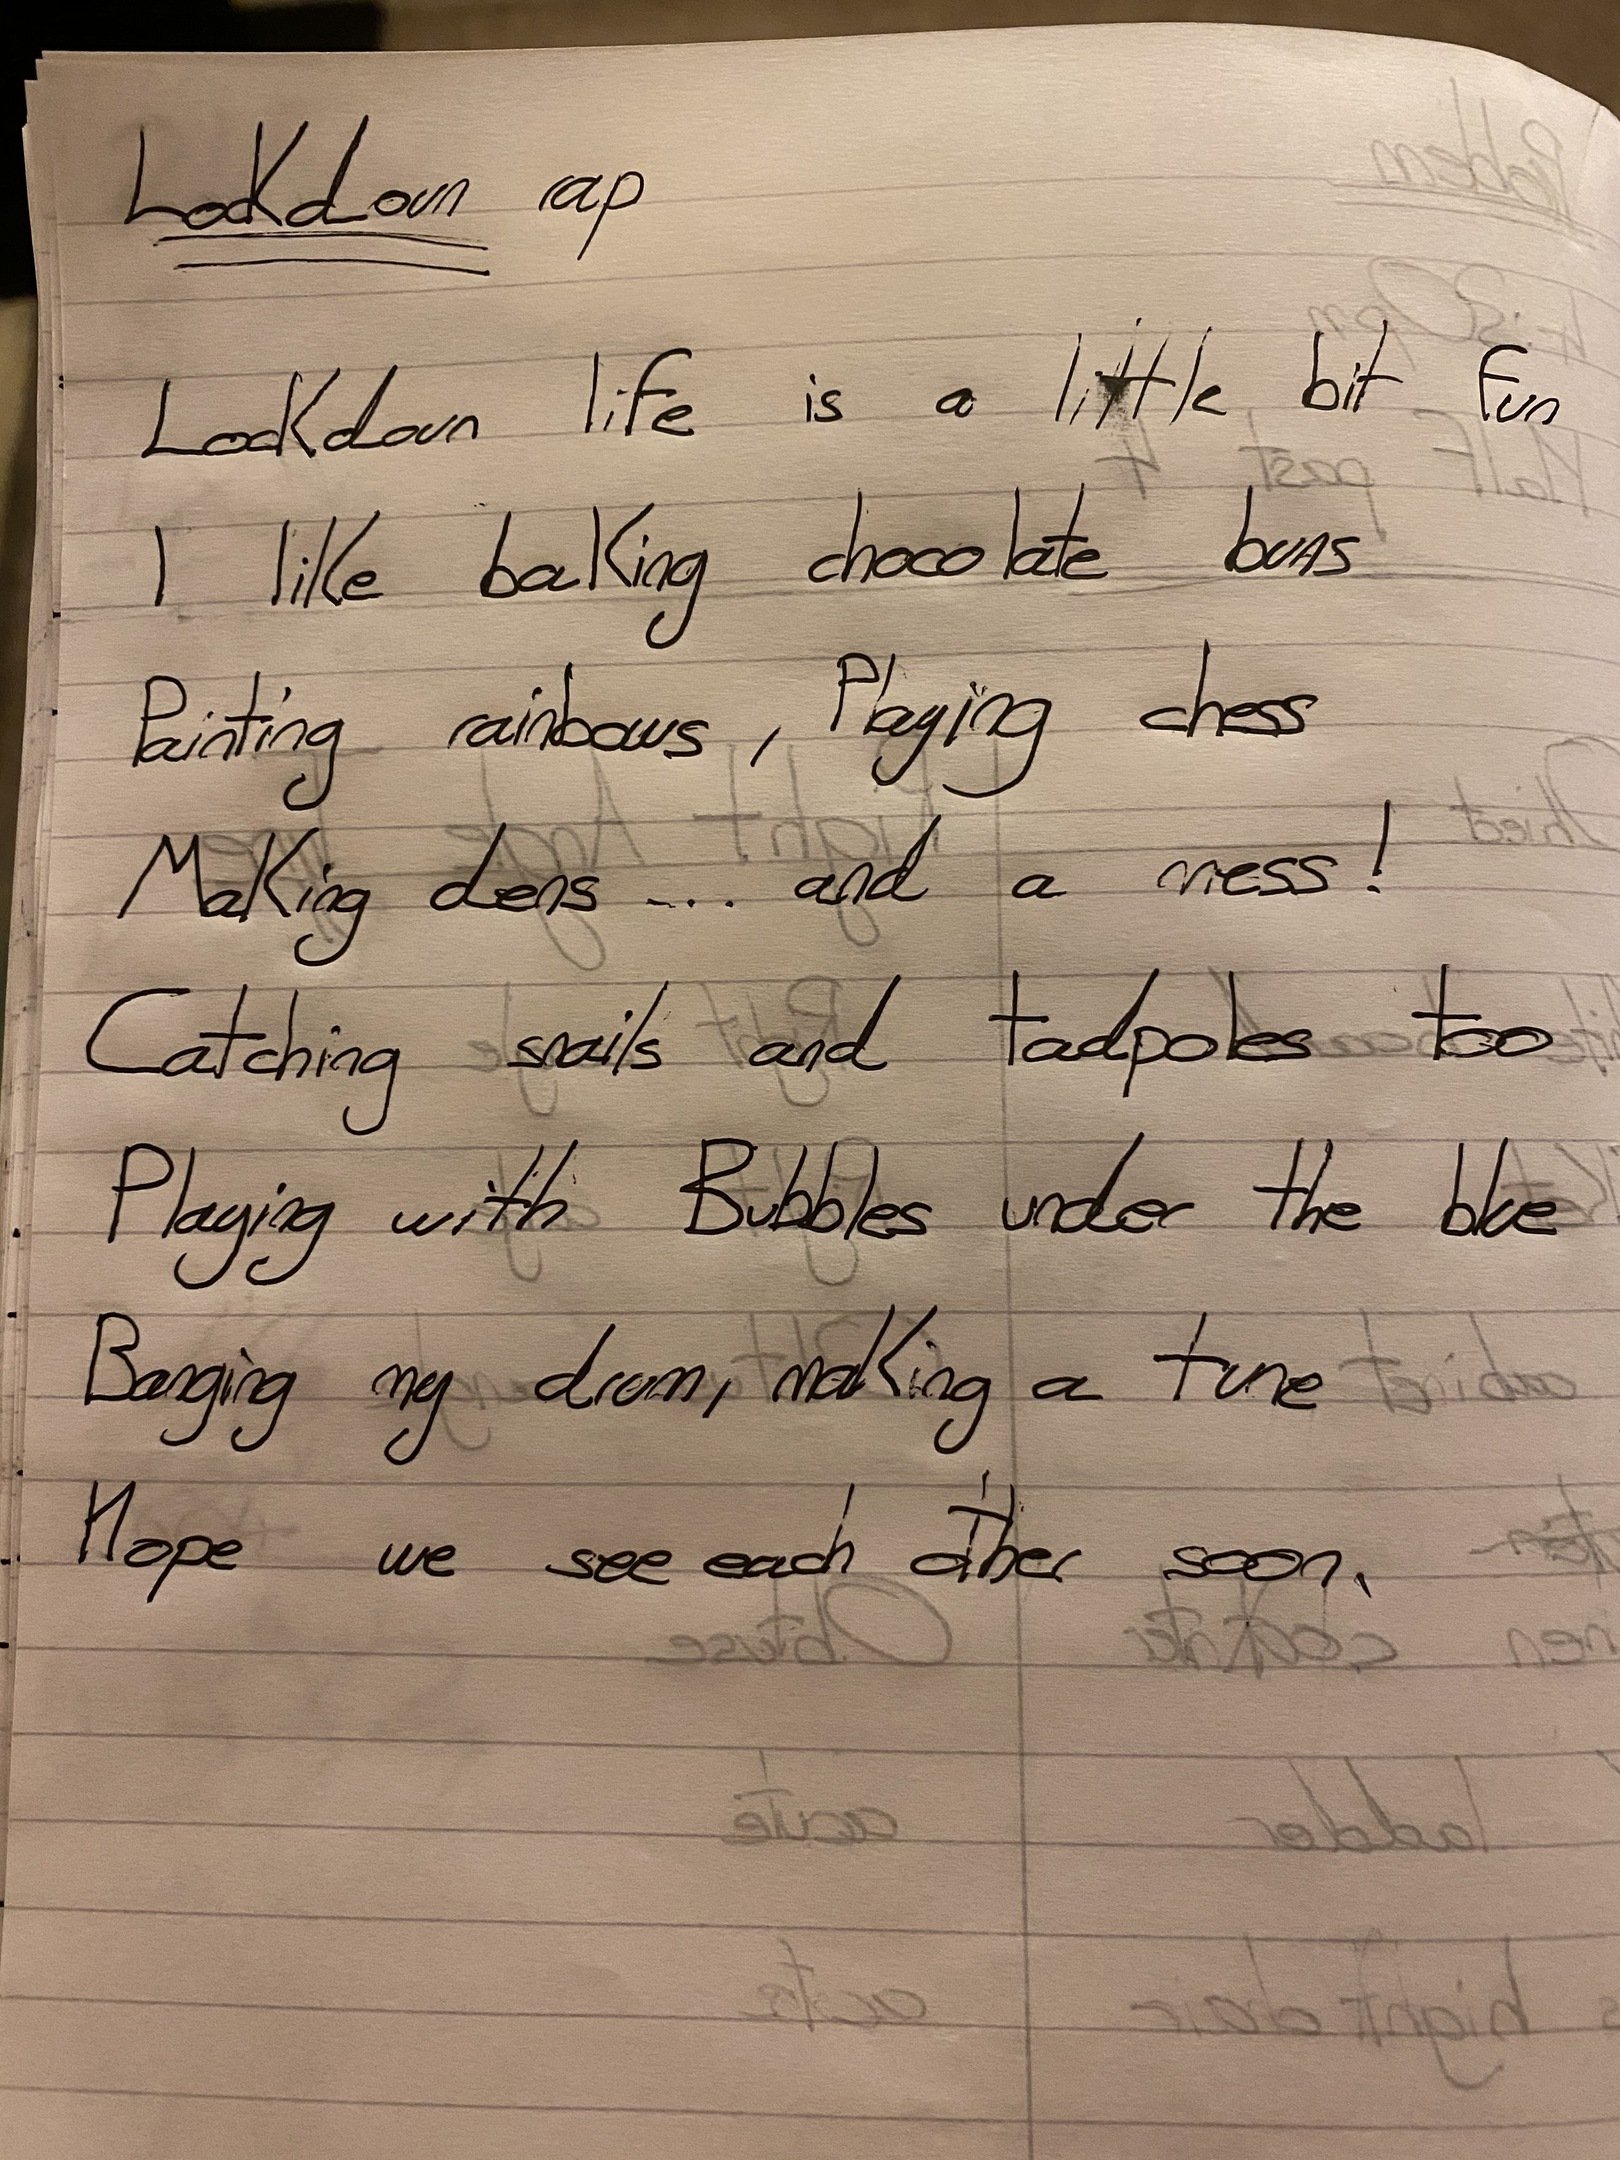 Lockdown rap
Lockdown life is a little bit fun
I like baking chocolate buns
Painting rainbows, Playing chess
Making dens .... and a mess!
Catching snails and tadpoles too
Playing with Bubbles under the blue
Banging my drum, making a tune
Hope we see each other soon.